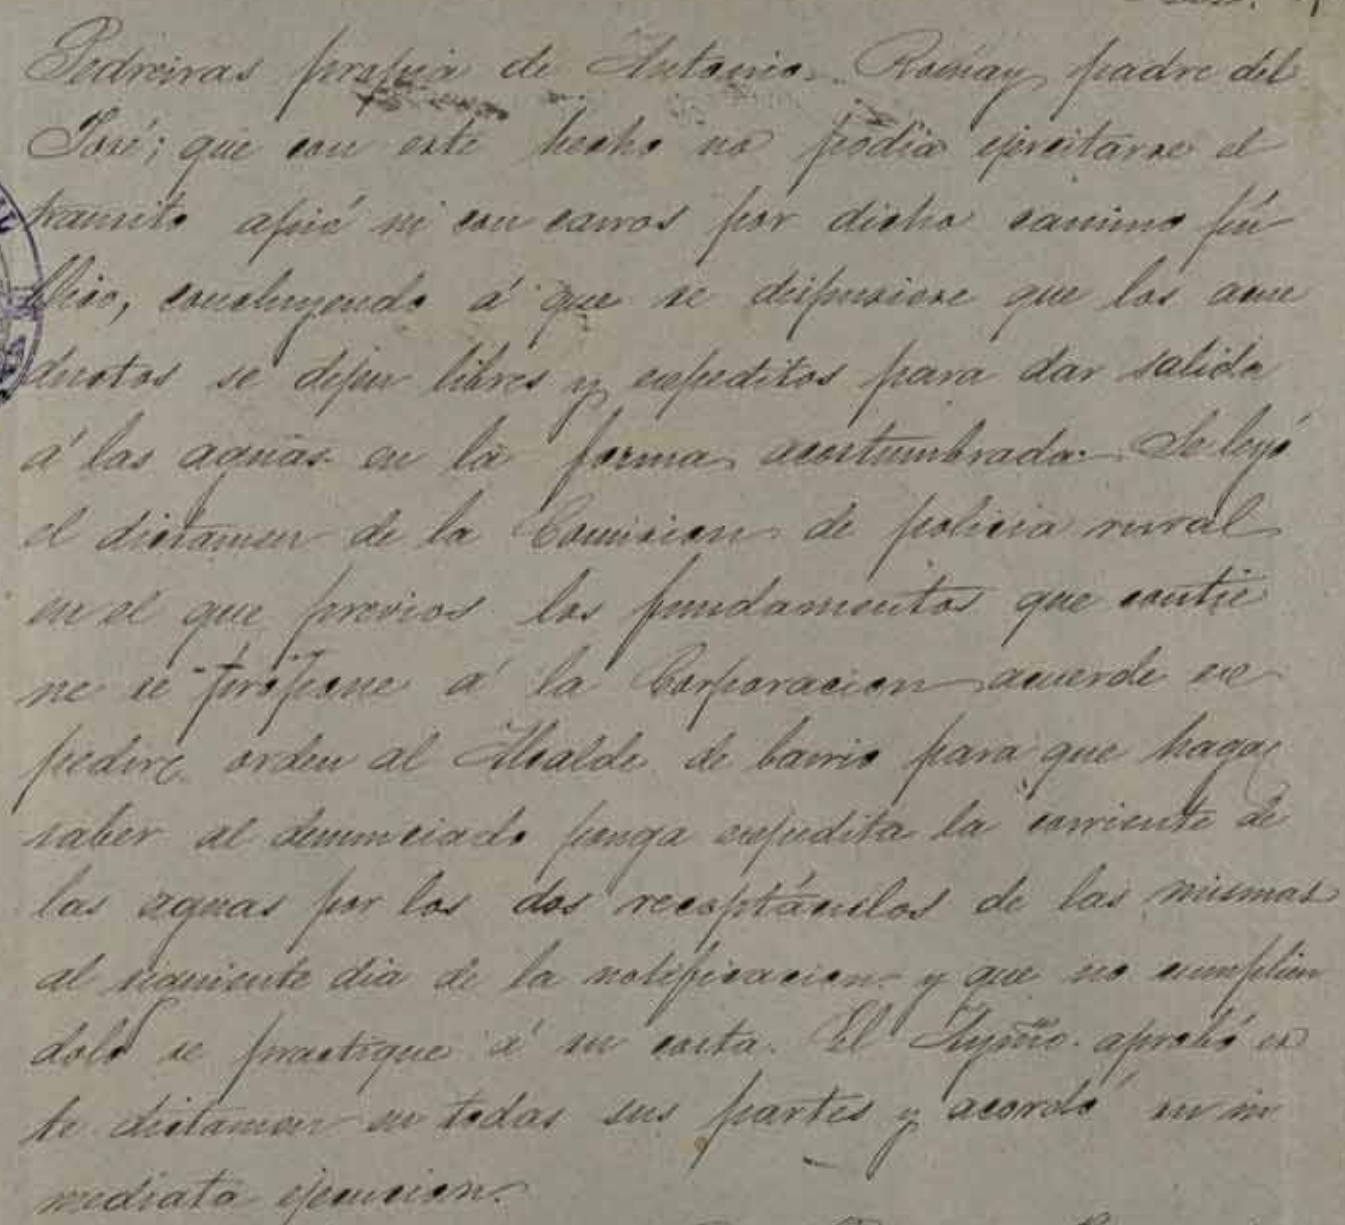 Pedreiras propia de Antonio Romay padre del
José; que con este hecho no podia ejercitarse el
transito apié ni con carros por dicho camino pú
blico, concluyendo á que se dispusiese que los acue
ductos se dejen libres y expeditos para dar salida
á las aguas en la forma acostumbrada. Se leyó
el dictamen de la Comision de policia rural
en el que previos los fundamentos que contie
ne se propone á la Corporacion acuerde ex
pedir orden al Alcalde de barrio para que haga
saber al denunciado ponga expedita la corriente de
las aguas por los dos receptáculos de las mismas
al siguiente dia de la notificacion y que no cumplien
dolo se practique á su costa. El Aymto. aprobó es
te dictamen en todas sus partes y acordó su in
mediata ejecucion.